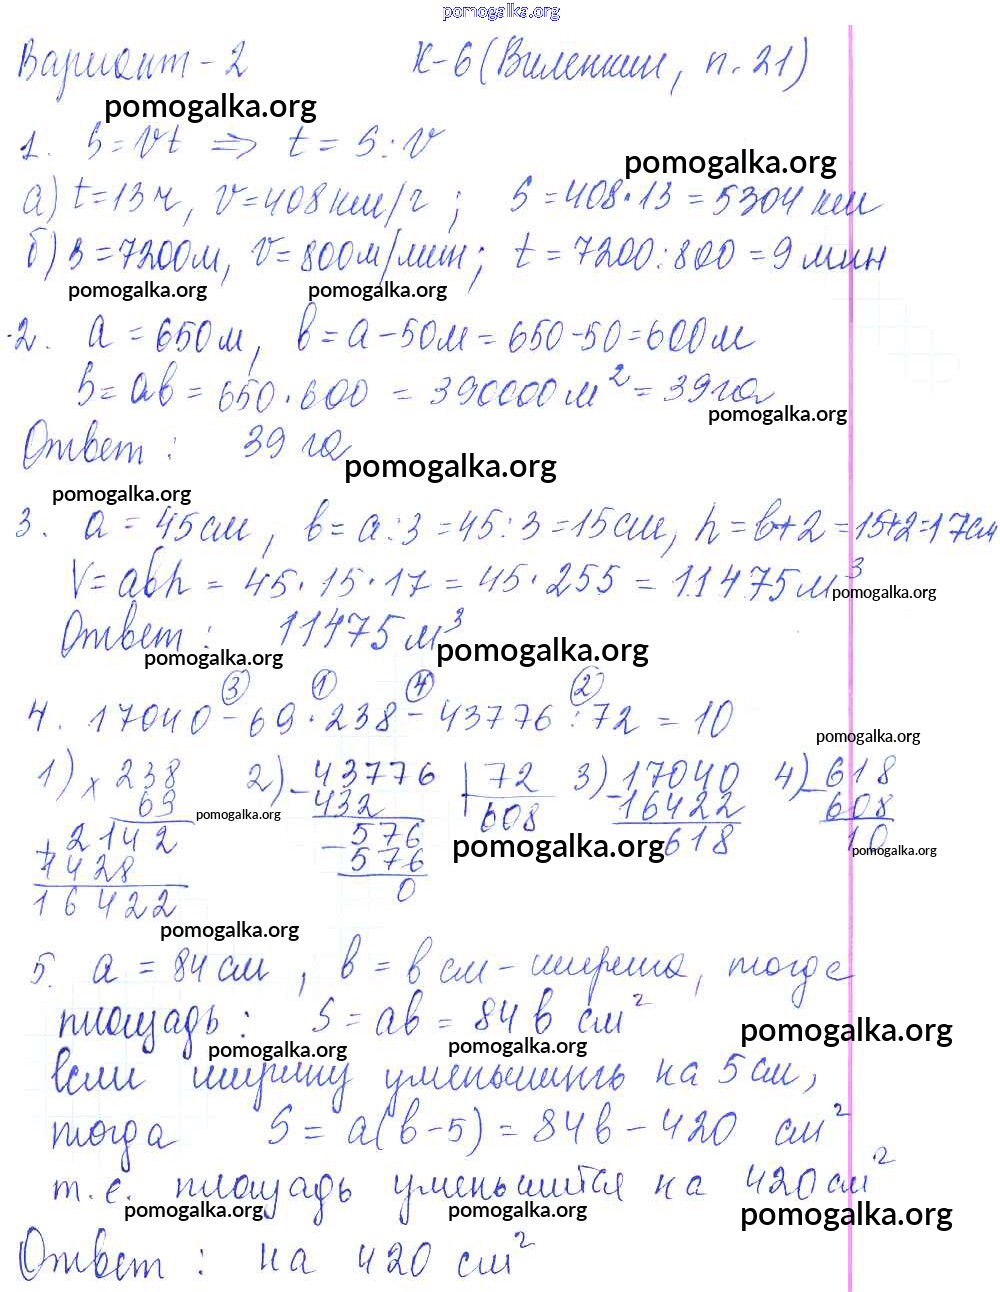 pomogalka.org
Вариант-2 К-6 (Виленкин, п. 21)
pomogalka.org
1. S=Vt ⇒ t = S:V
pomogalka.org
а) t=13ч, V=408км/ч; S=408·13=5304 км
б) S=7200м, V=800м/мин; t=7200:800=9 мин
pomogalka.org pomogalka.org
2. a=650м, b=a-50м=650-50=600м
S=ab=650·600=390000м²=39га
pomogalka.org
Ответ: 39 га
pomogalka.org
pomogalka.org
3. a=45см, b=a:3=45:3=15см, h=b+2=15+2=17см
V=abh=45·15·17=45·255=11475м³
pomogalka.org
Ответ: 11475м³
pomogalka.org pomogalka.org
③ ① ④ ②
4. 17040-69·238-43776:72=10
pomogalka.org
1) × 238 2) - 43776 | 72 3) - 17040 4) - 618
69 432 608 16422 608
pomogalka.org
+ 2142 - 576 618 10
pomogalka.org pomogalka.org
1428 576
16422 0
pomogalka.org
5. a=84см, b=b см-ширина, тогда
площадь: S=ab=84b см²
pomogalka.org
pomogalka.org pomogalka.org
если ширину уменьшить на 5см,
тогда S=a(b-5)=84b-420 см²
т.е. площадь уменьшится на 420см²
pomogalka.org pomogalka.org pomogalka.org
Ответ: на 420 см²